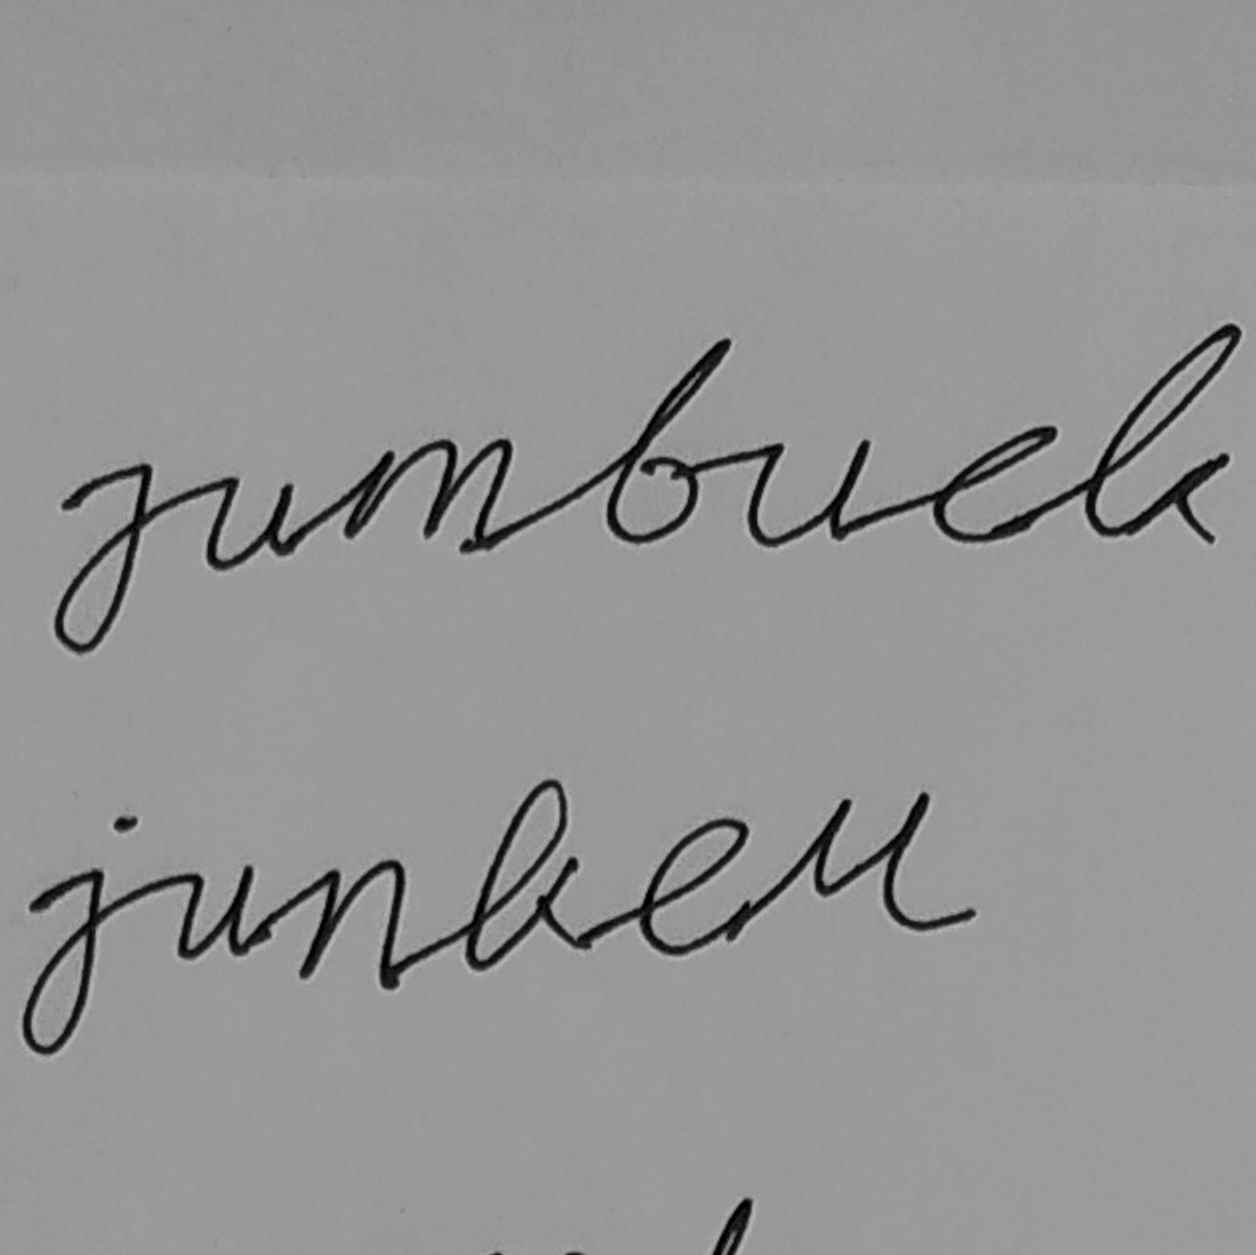 jumbuck
junker